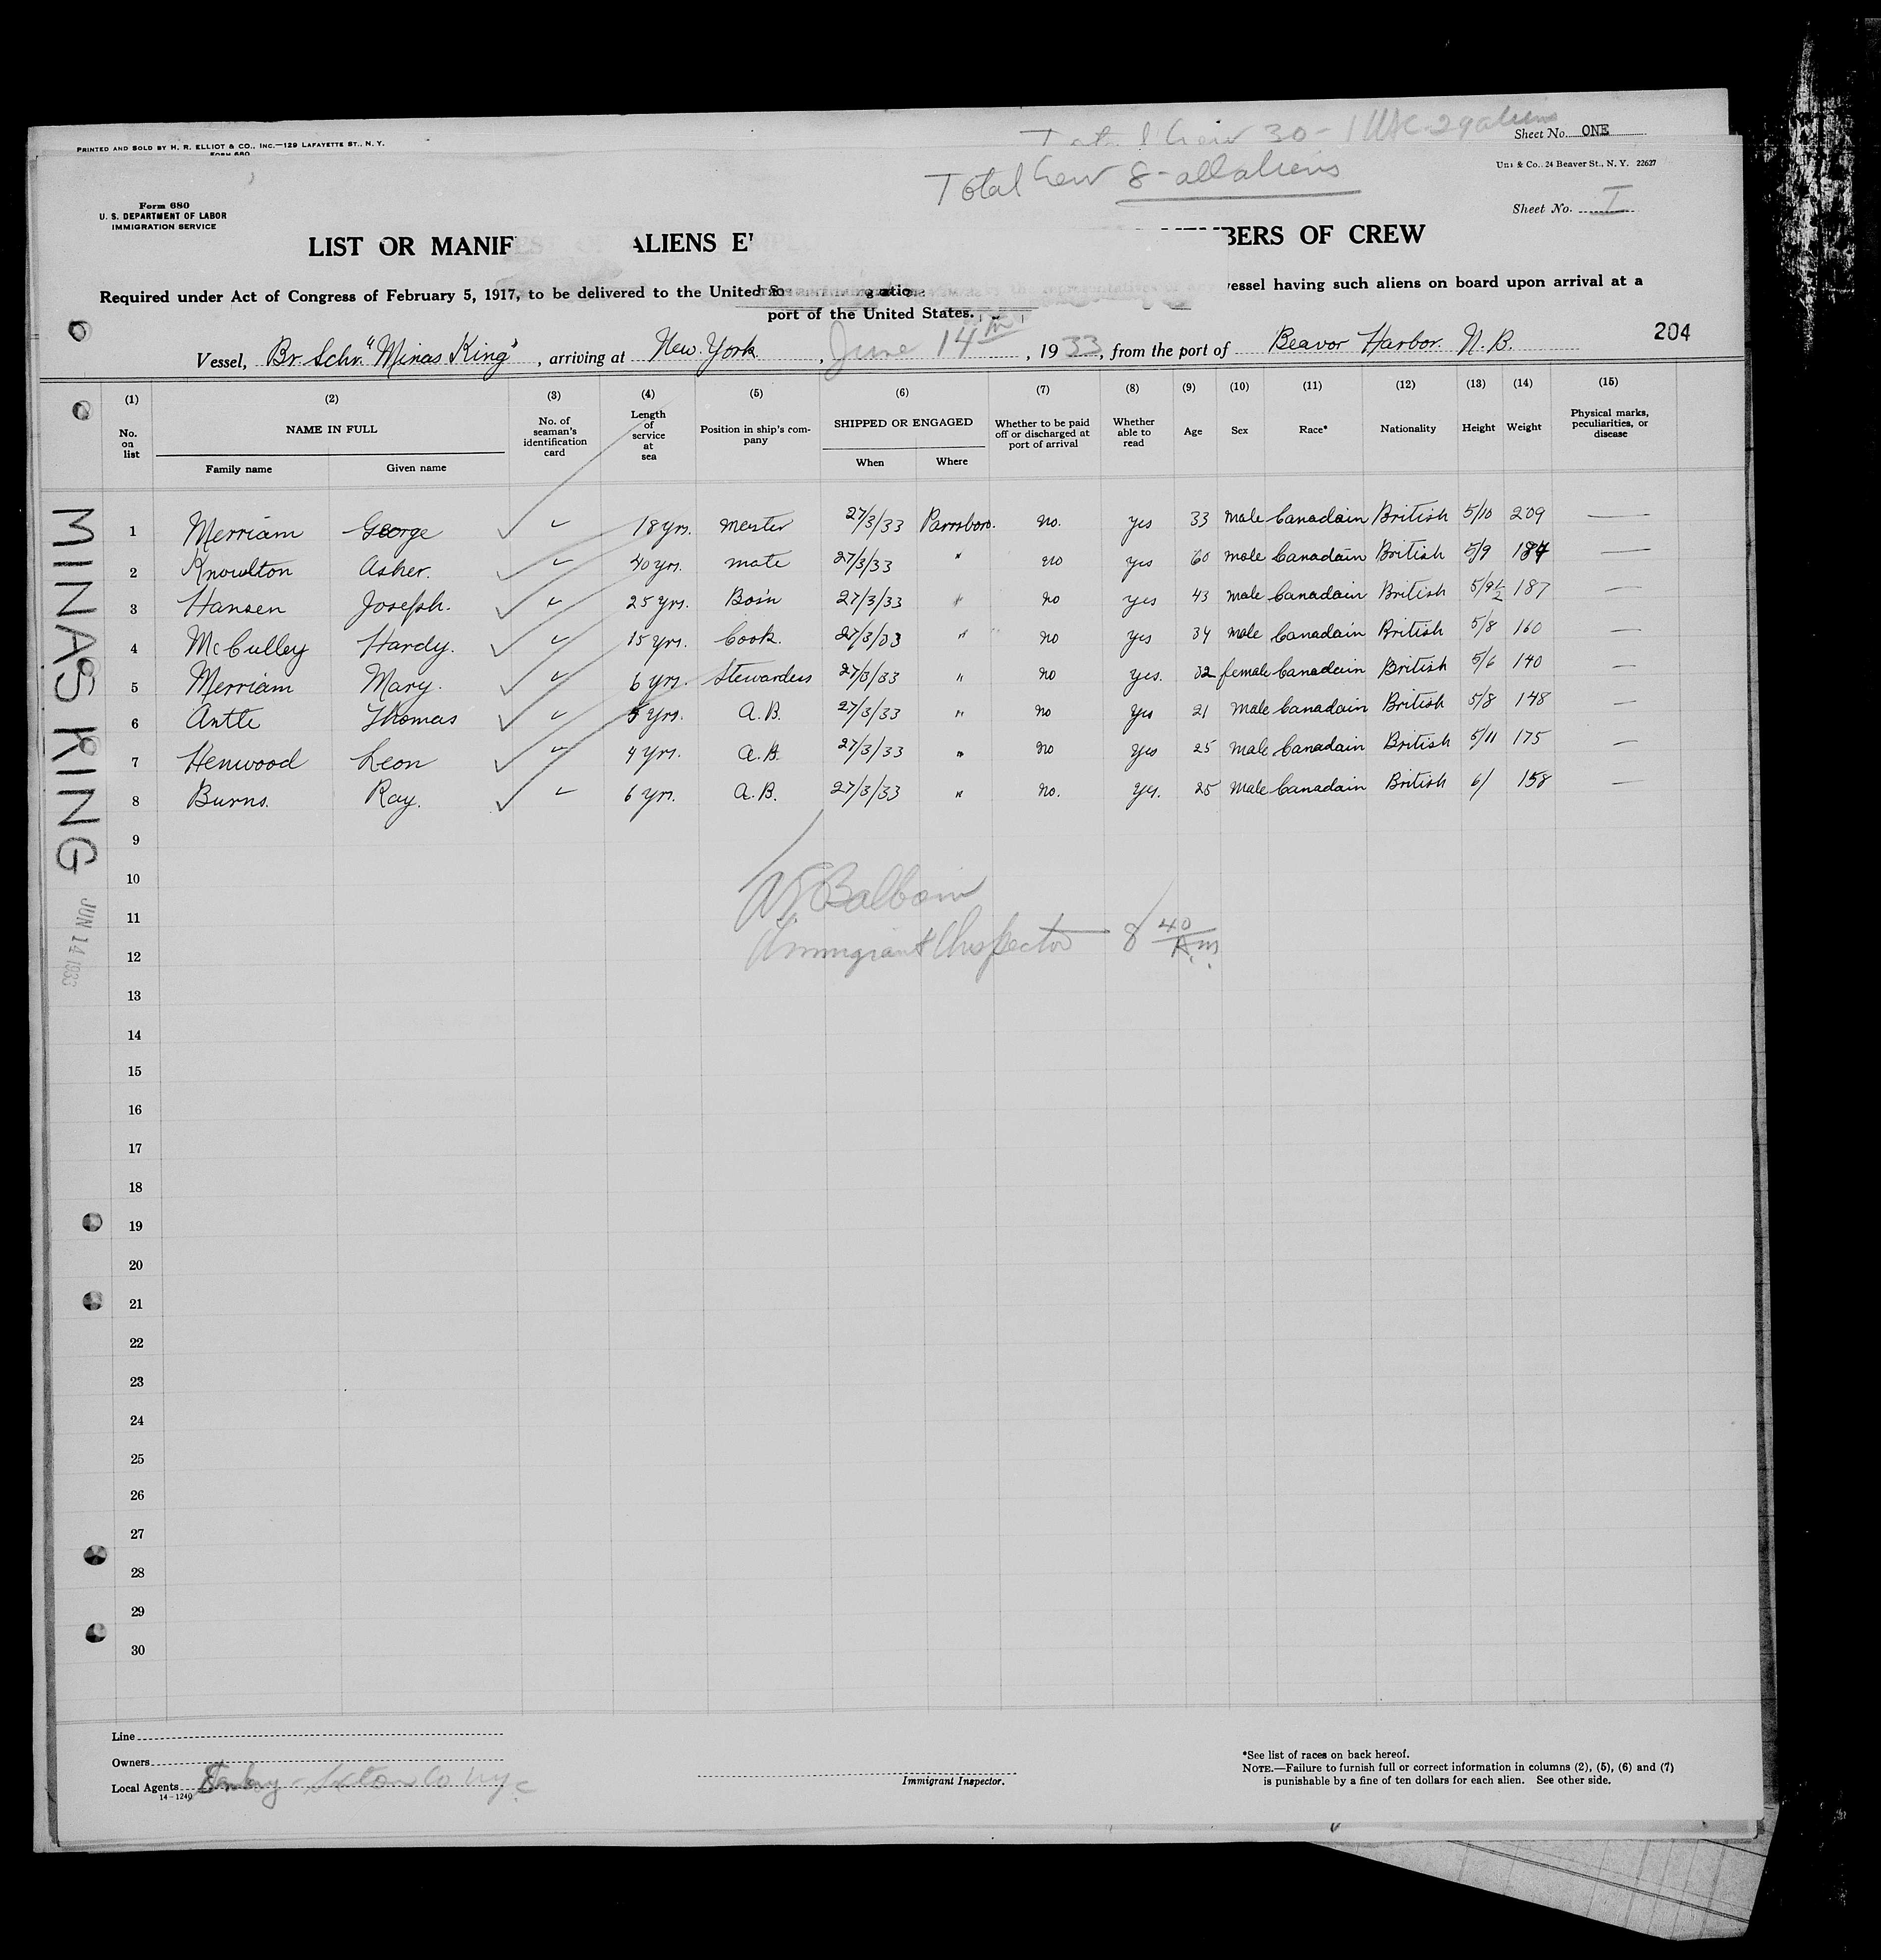 PRINTED AND SOLD BY H. R. ELLIOT & CO., INC.—129 LAFAYETTE ST., N. Y.
Crew 30 - 1 USC - 29 aliens
Sheet No. ONE
Total Crew 8 - all aliens
& Co., 24 Beaver St., N. Y. 22627
Form 680
U. S. DEPARTMENT OF LABOR
IMMIGRATION SERVICE
Sheet No. I
LIST OR MANIF ALIENS E BERS OF CREW
Required under Act of Congress of February 5, 1917, to be delivered to the United vessel having such aliens on board upon arrival at a
port of the United States.
204
Vessel, Br. Schr. "Minas King", arriving at New York, June 14th, 1933, from the port of Beavor Harbor. N.B.
(1) (2) (3) (4) (5) (6) (7) (8) (9) (10) (11) (12) (13) (14) (15)
No. on list NAME IN FULL No. of seaman's identification card Length of service at sea Position in ship's company SHIPPED OR ENGAGED Whether to be paid off or discharged at port of arrival Whether able to read Age Sex Race* Nationality Height Weight Physical marks, peculiarities, or disease
Family name Given name When Where
1 Merriam George ✓ ✓ 18 yrs. Master 27/3/33 Parrsboro. no. yes 33 male Canadain British 5/10 209 —
2 Knowlton Asher. ✓ ✓ 40 yrs. mate 27/3/33 " no yes 60 male Canadain British 5/9 187 —
3 Hansen Joseph. ✓ ✓ 25 yrs. Bos'n 27/3/33 " no yes 43 male Canadain British 5/9½ 187 —
4 McCulley Hardy. ✓ ✓ 15 yrs. Cook. 27/3/33 " no yes 34 male Canadain British 5/8 160 —
5 Merriam Mary. ✓ ✓ 6 yrs. Stewardess 27/3/33 " no yes. 32 female Canadain British 5/6 140 —
6 Antle Thomas ✓ ✓ 5 yrs. A.B. 27/3/33 " no yes 21 Male Canadain British 5/8 148 —
7 Henwood Leon ✓ ✓ 4 yrs. A.B. 27/3/33 " no yes 25 Male Canadain British 5/11 175 —
8 Burns. Ray. ✓ ✓ 6 yrs. A.B. 27/3/33 " no. yes. 25 Male Canadain British 6/ 158 —
9
10
11
12
13
14
15
16
17
18
19
20
21
22
23
24
25
26
27
28
29
30
MINAS KING
JUN 14 1933
Immigrant Inspector — 8 40 Am.
Line
Owners
Local Agents Co NYC
14-1240
Immigrant Inspector.
*See list of races on back hereof.
NOTE.—Failure to furnish full or correct information in columns (2), (5), (6) and (7)
is punishable by a fine of ten dollars for each alien. See other side.